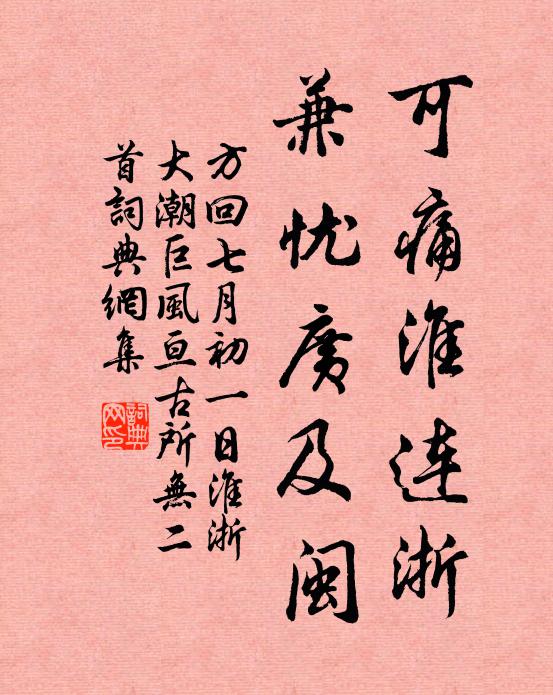 可痛淮连浙
兼忧廣及闽
方回七月初一日淮浙
大潮巨風亘古所無二
首詞典網集
詞典
网印